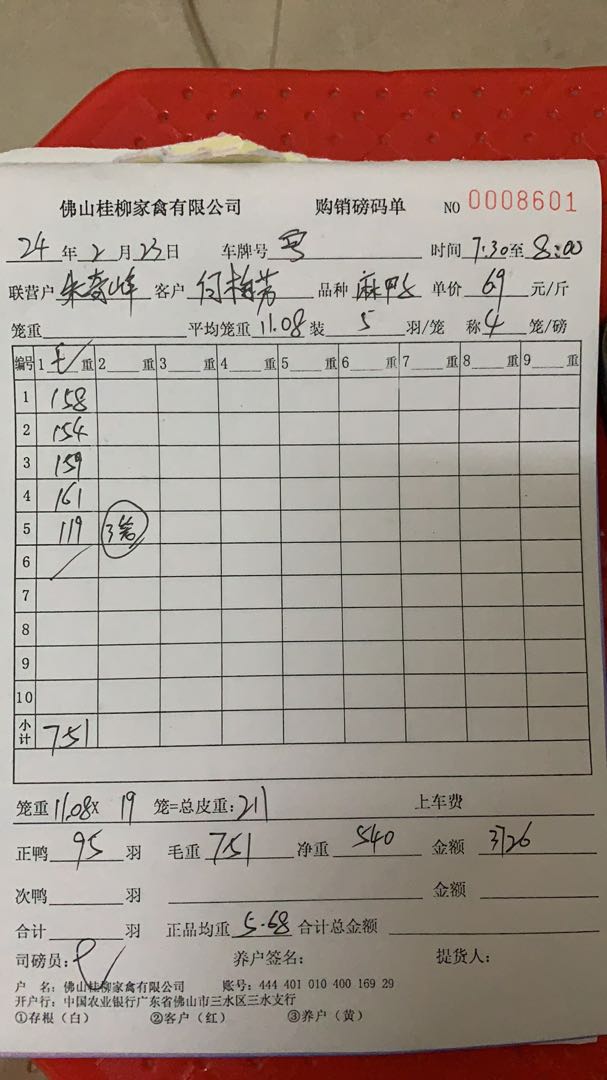 佛山桂柳家禽有限公司 购销磅码单 NO 0008601
24 年 2 月 23 日 车牌号 时间 7:30 至 8:00
联营户 朱奇峰 客户 何梅芳 品种 麻鸭 单价 6.9 元/斤
笼重 平均笼重 11.08 装 5 羽/笼 称 4 笼/磅
编号 1 毛 重 2 重 3 重 4 重 5 重 6 重 7 重 8 重 9 重
1 158
2 154
3 159
4 161
5 119 3笼
6
7
8
9
10
小计 751
笼重 11.08 X 19 笼=总皮重: 211 上车费
正鸭 95 羽 毛重 751 净重 540 金额 3726
次鸭 羽 金额
合计 羽 正品均重 5.68 合计总金额
司磅员: 养户签名: 提货人:
户 名: 佛山桂柳家禽有限公司 账号: 444 401 010 400 169 29
开户行: 中国农业银行广东省佛山市三水区三水支行
①存根(白) ②客户(红) ③养户(黄)